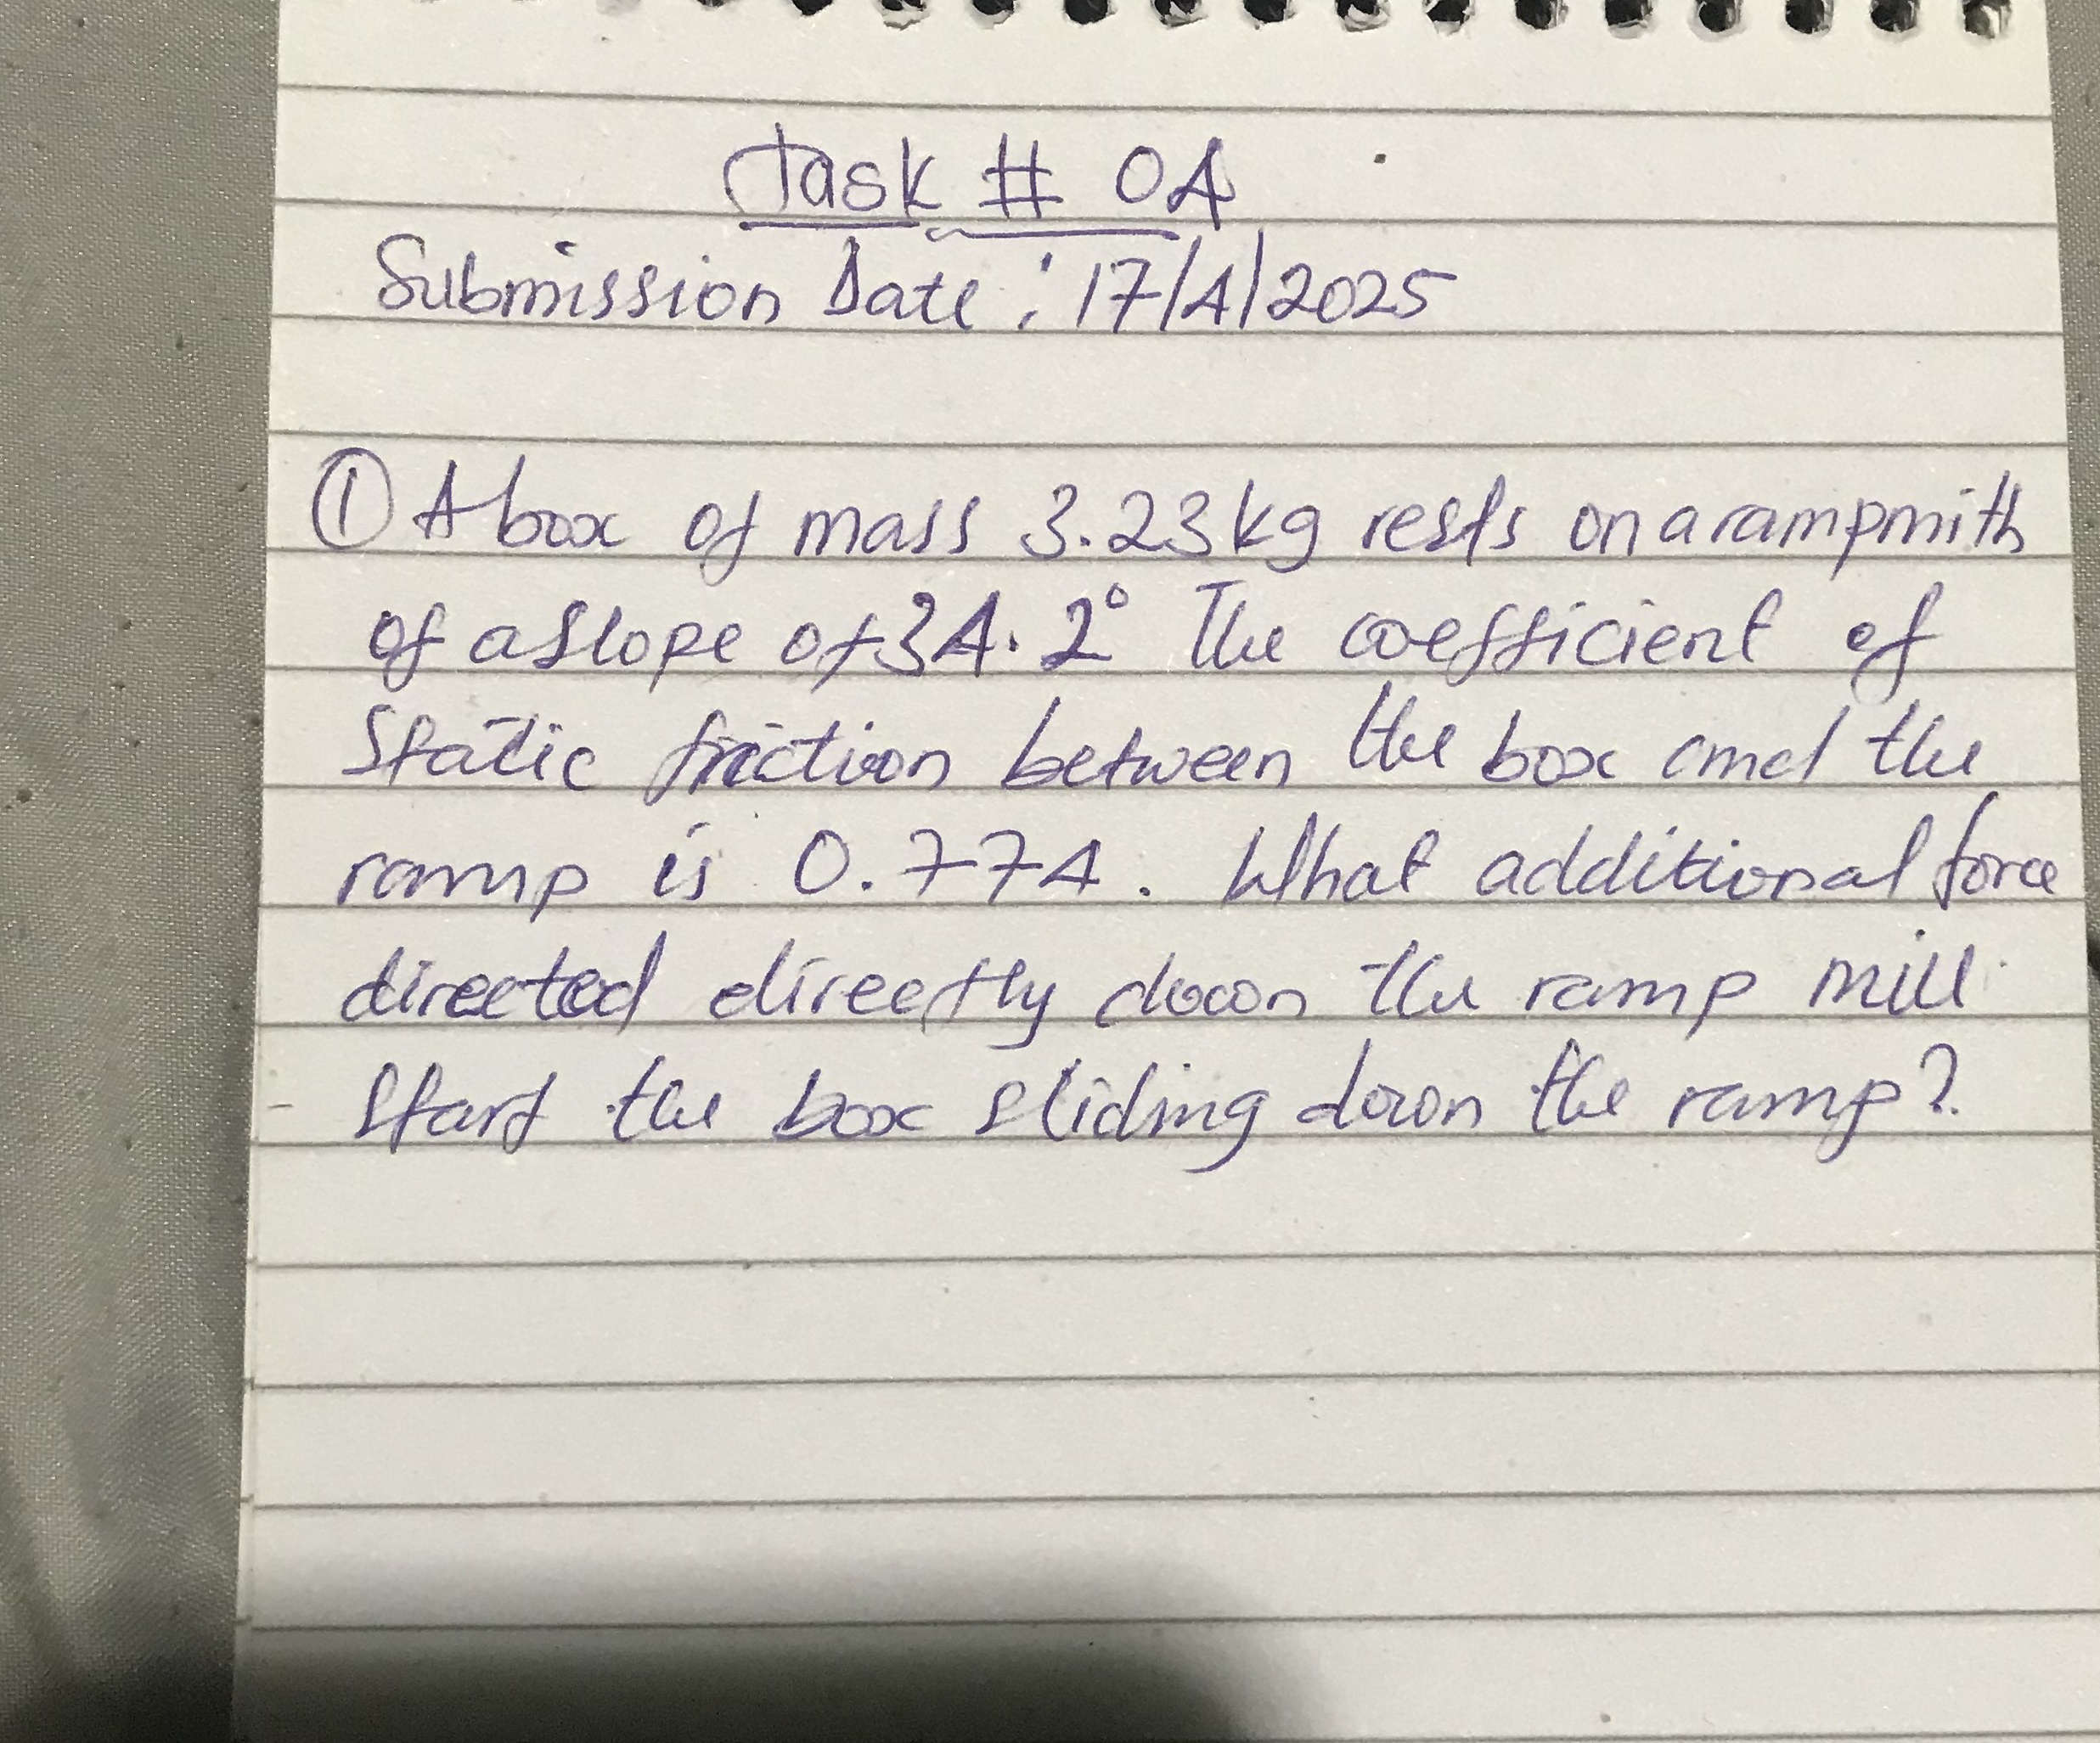 Task # 04
Submission Date : 17/4/2025
① A box of mass 3.23kg rests on a ramp with
of a slope of 34.2° The coefficient of
static friction between the box and the
ramp is 0.774. What additional force
directed directly down the ramp will
start the box sliding down the ramp?